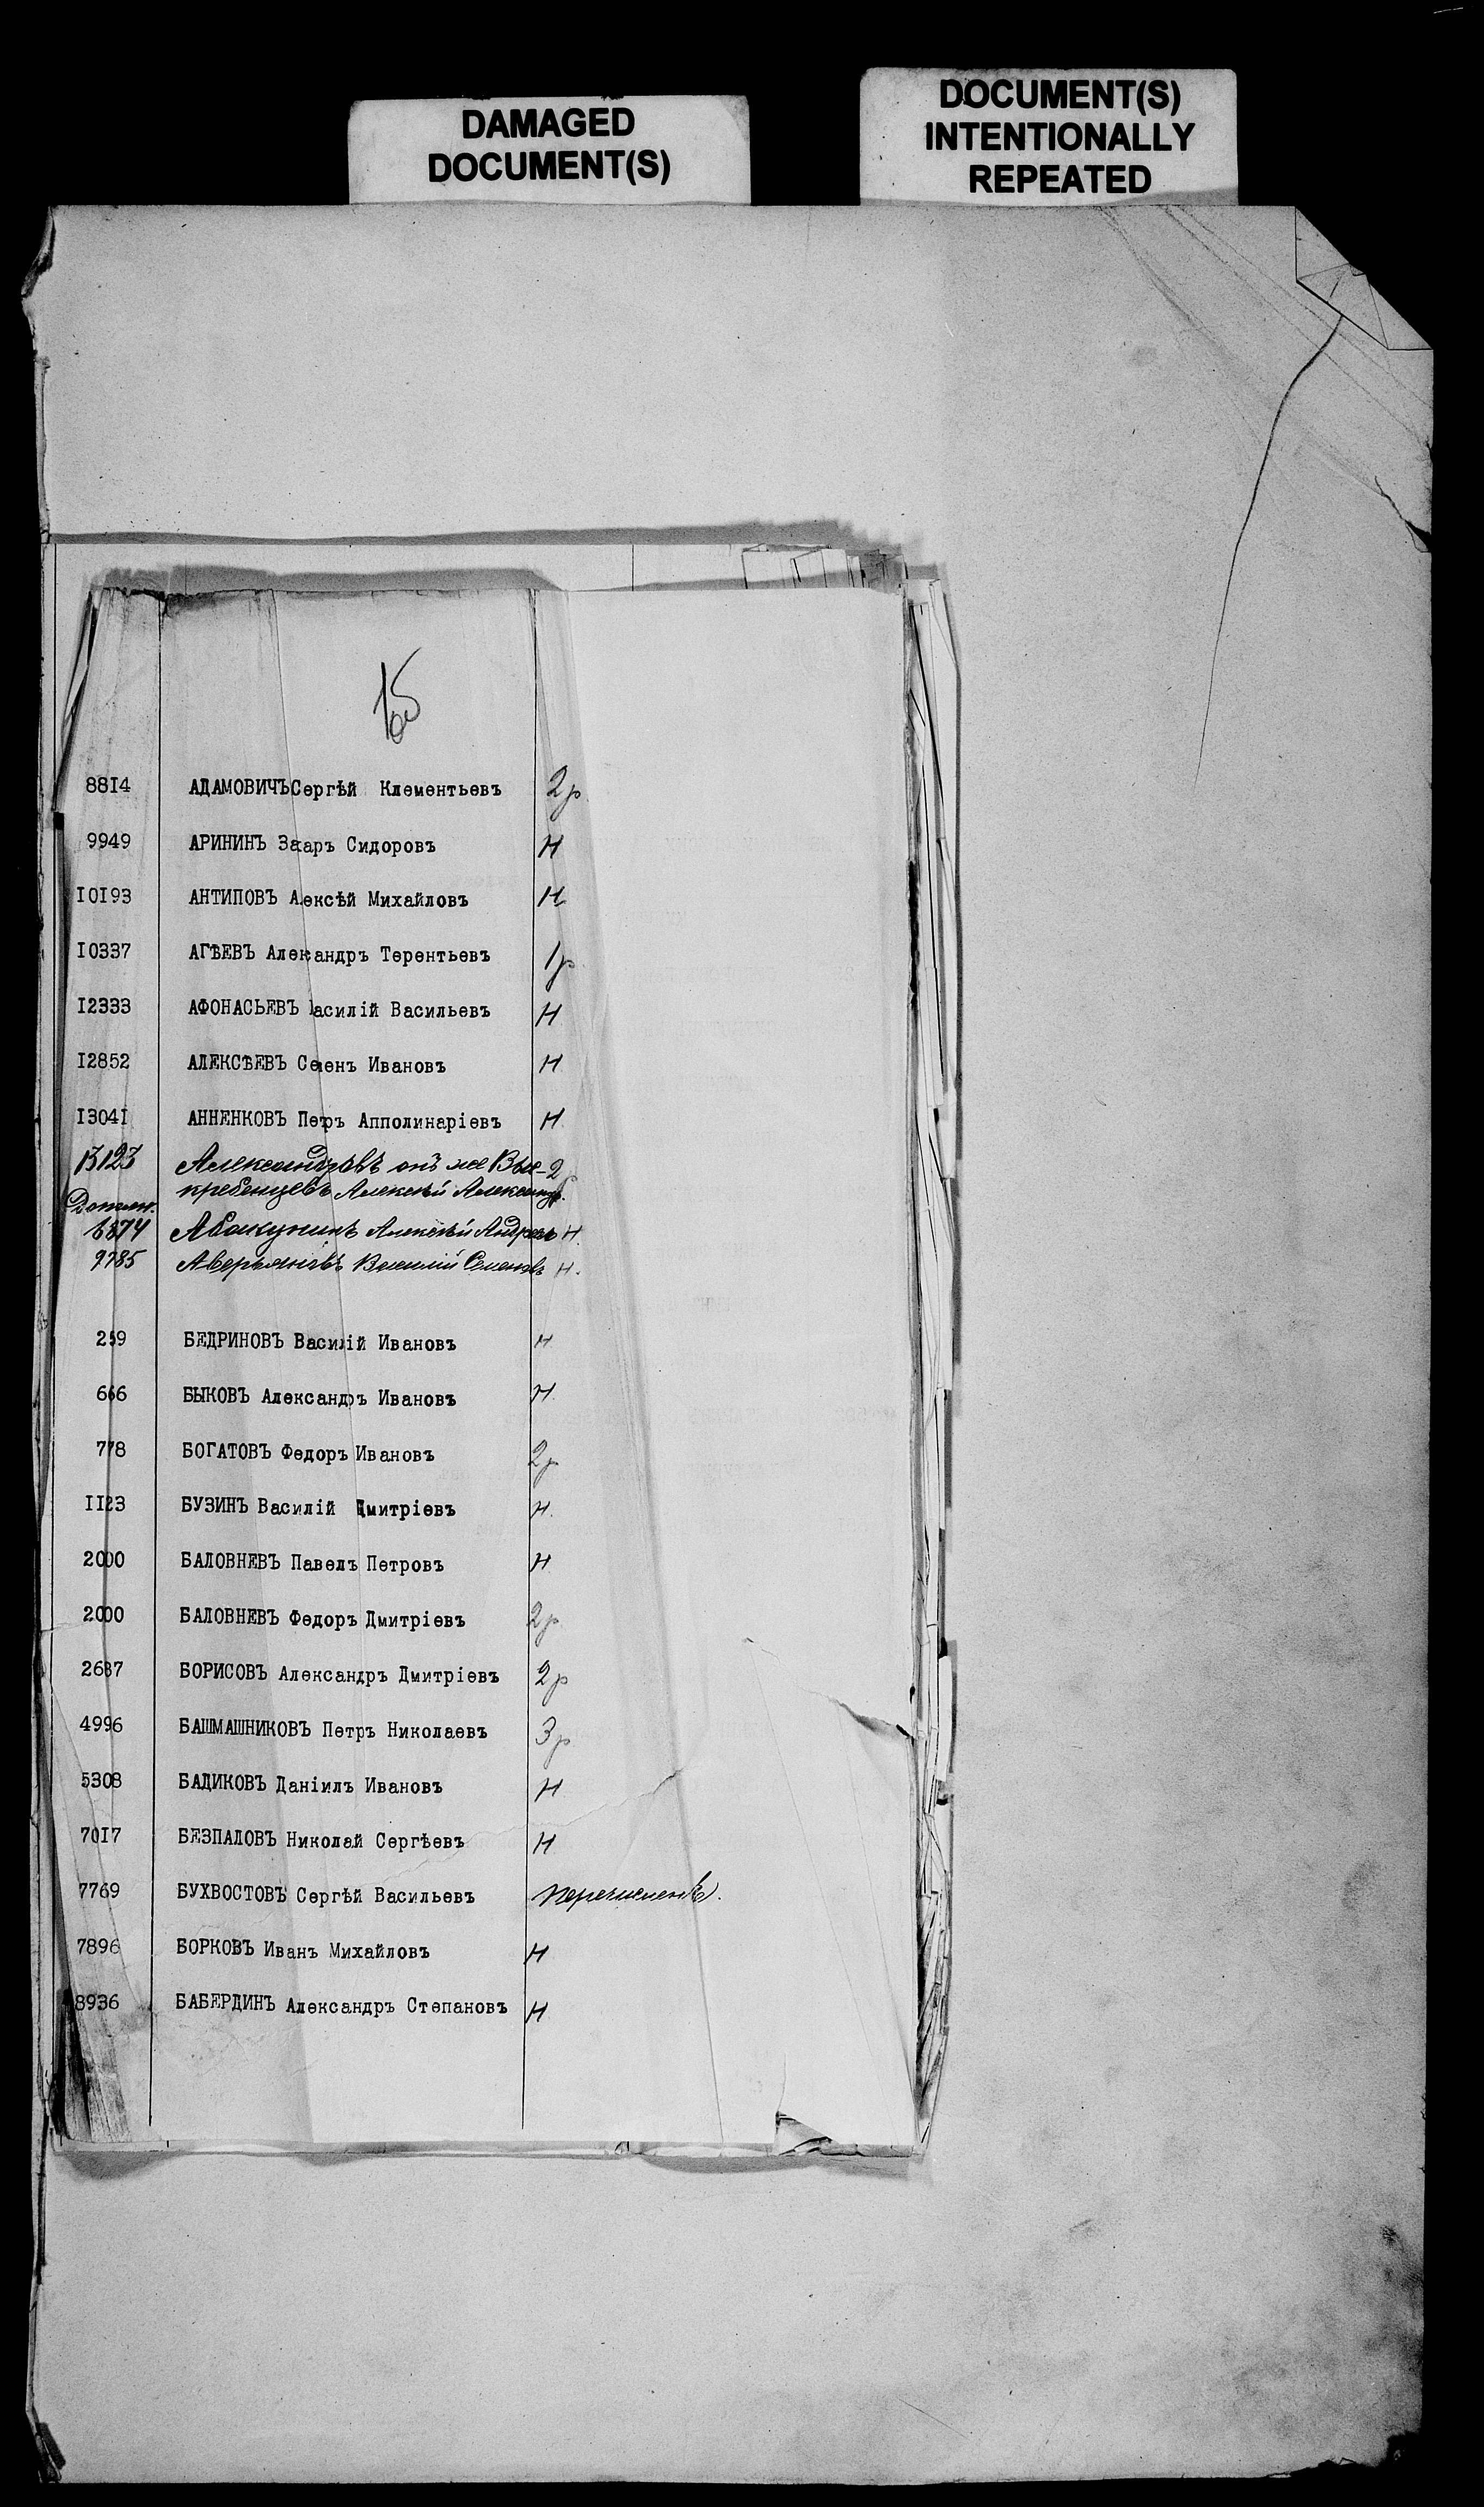 DAMAGED
DOCUMENT(S)
DOCUMENT(S)
INTENTIONALLY
REPEATED
8814 АДАМОВИЧЪ Сергѣй Клементьевъ 2р
9949 АРИНИНЪ Захаръ Сидоровъ Н
I0I93 АНТИПОВЪ Алексѣй Михайловъ Н
I0337 АГѢЕВЪ Александръ Терентьевъ 1р
I2333 АФОНАСЬЕВЪ Василій Васильевъ Н
I2852 АЛЕКСѢЕВЪ Семенъ Ивановъ Н
I304I АННЕНКОВЪ Петръ Апполинаріевъ Н
13123 Александровъ онъ же Вы- 2р
кребенцевъ Алексѣй Александр.
Дополн.
6874 Абакумин Алексѣй Андреев Н.
9785 Аверьяновъ Василій Семеновъ Н.
259 БЕДРИНОВЪ Василій Ивановъ Н
666 БЫКОВЪ Александръ Ивановъ Н
778 БОГАТОВЪ Федоръ Ивановъ 2р
II23 БУЗИНЪ Василій Дмитріевъ Н.
2000 БАЛОВНЕВЪ Павелъ Петровъ Н
2000 БАЛОВНЕВЪ Федоръ Дмитріевъ 2р
2687 БОРИСОВЪ Александръ Дмитріевъ 2р
4996 БАШМАШНИКОВЪ Петръ Николаевъ 3р
5308 БАДИКОВЪ Даніилъ Ивановъ Н
70I7 БЕЗПАЛОВЪ Николай Сергѣевъ Н
7769 БУХВОСТОВЪ Сергѣй Васильевъ перечисленъ.
7896 БОРКОВЪ Иванъ Михайловъ Н
8936 БАБЕРДИНЪ Александръ Степановъ Н